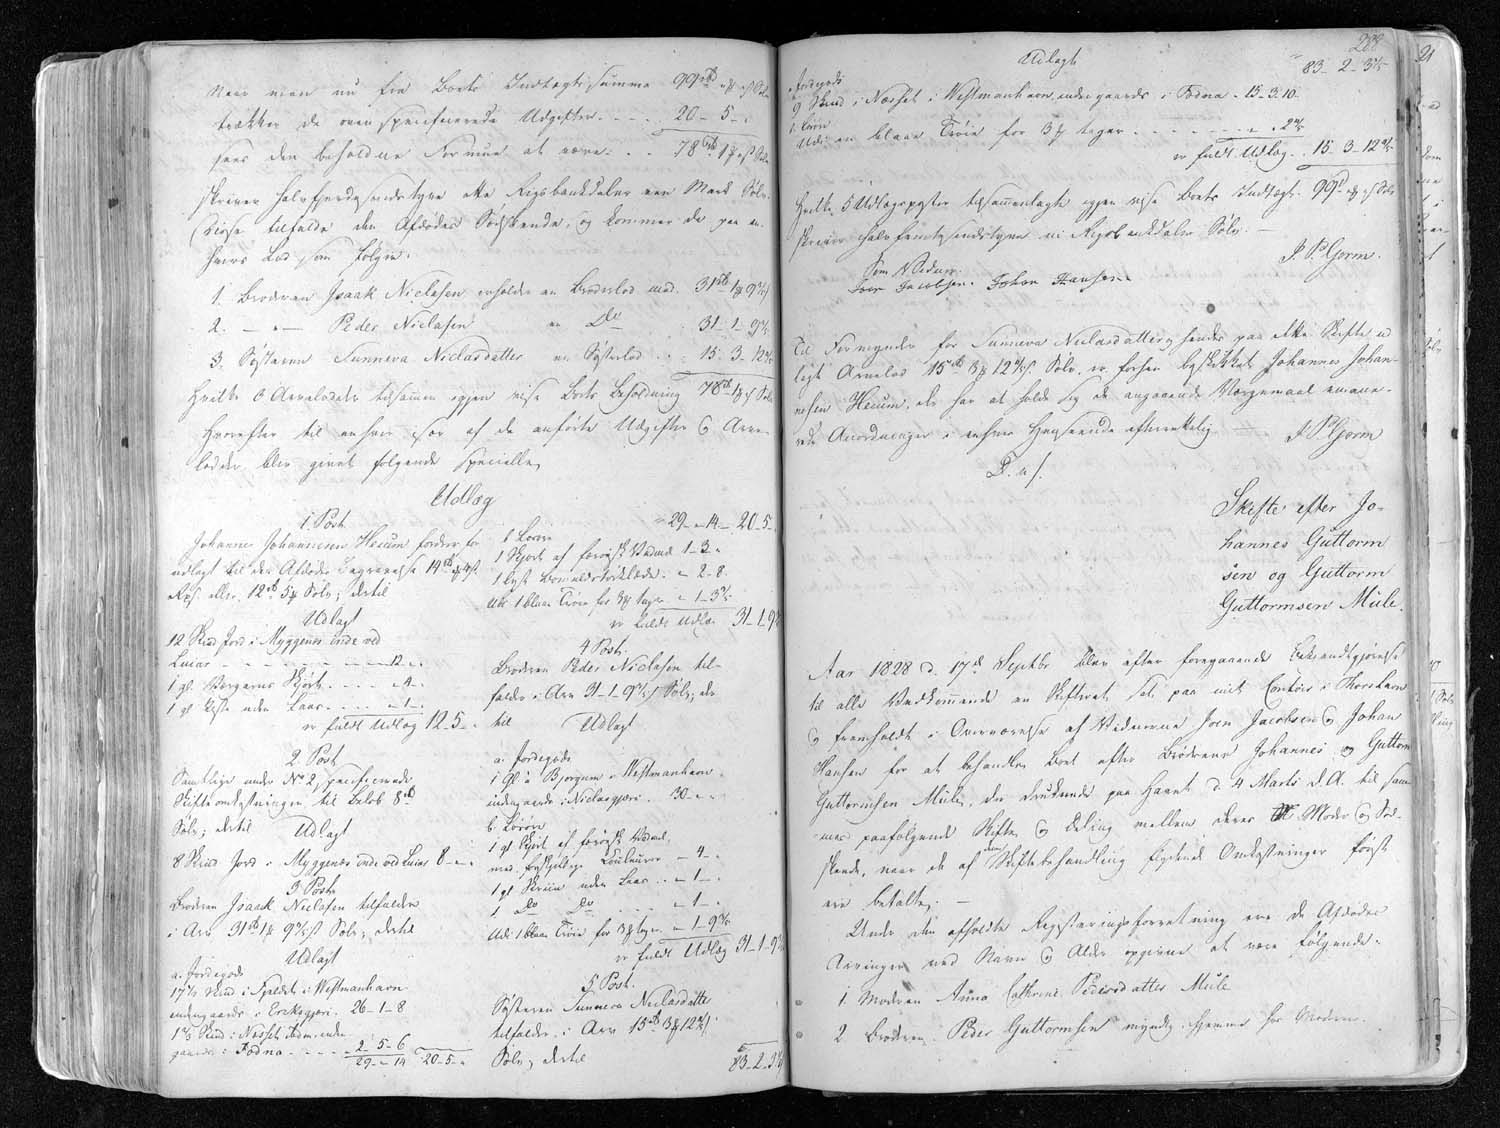 Naar man nu fra Boets Indtægtssumma 99 rbd
trækker de oven specificerede Udgifter 20 - 5 - "
sees den beholdne Formue at være 78 rbd 1 
skriver halvfjerdesindstyve otte Rigsbankdaler een Mark Sølv.
Disse tilfalde den Afdødes Sødskende, og kommer de paa en-
hvers Lod som følger:
1. Broderen Isaak Niclasen erholder en Broderlod med 31 rbd 1
2. — " — Peder Niclasen en Do 31 - 1 -
3. Søsteren Sunneva Niclasdatter en Søsterlod 15 - 3 - 12
Hvilke 3 Arvelodder tilsammen igjen vise Boets Beholdning 78 rbd 1
Hvorefter til enhver især af de anførte Udgifter og Arve-
lodder blev givet følgende specielle
Udlæg
1 Post
Johannes Johannesen Heeum fordrer for
udlagt til den Afdødes Begravelse 14 rbd
eller 12 rbd 5 Sølv; dertil
Udlagt
12 Skind Jord i Myggenæs inde ved
Luias - 12 -
1 gl. - 4 -
1 gl. Kiste uden Laas - 1 -
er fuldt Udlæg 12 - 5 -
2 Post
Samtlige under No 2 specificerede
Skifteomkostninger til Beløb 8 rbd
Sølv; dertil Udlagt
8 Skind Jord i Myggenæs inde ved Luias 8 -
3 Post
Broderen Isaack Niclasen tilfalder
i Arv 31 rbd 1 Sølv; dertil
Udlagt
a. Jordegods
17 Skind i Fjeldet i Westmanhavn
indengaards i Eriksgjæri. 26 - 1 - 8
1 Skind i Nesset inden-
gaards i Todna 2 - 5 - 6
29 - " - 14 20 - 5 -
29 - " - 14 - 20 - 5 -
b. Løsøre
1 Skjort af færøisk Vadmel 1 - 3 -
1 lyst Bomuldstørklæde " - 2 - 8
Udi 1 blaa Trøie for 3 tages " - 1 - 3
er fuldt Udlæg 31 - 1 - 9
4 Post.
Broderen Peder Niclasen til-
falder i Arv 31 - 1 - 9 Sølv; der-
til Udlagt
a. Jordegods
1 Gl. i Bjorgum i Westmanhavn
indengaards i Niclasgjæri. 30 -
b. Løsøre
1 gl. Skjort af færøisk Vadmel
med forskjellige Couleurer " - 4 -
1 gl. Skriin uden Laas " - 1 -
1 Do Do " - 1 -
Udi 1 blaa Trøie for 3 tages " - 1 - 9
er fuldt Udlæg 31 - 1 - 9
5 Post.
Søsteren Sunneva Niclasdatter
tilfalder i Arv 15 rbd 3 12
Sølv; dertil 83 - 2 - 3
288
Udlagt
83 - 2 - 3
Jordegods
9 Skind i Næsset i Westmanhavn indengaards i Todna 15 - 3 - 10
Løsøre
Udi en blaae Trøie for 3 tages 2
er fuldt Udlæg 15 - 3 - 12
Hvilke 5 Udlægsposter tilsammenlagte igjen vise Boets Indtægt 99
skriver halvfemtesindstyve ni Rigsbankdaler Sølv.
Som Vidner. J. P. Gjorm.
Joen Jacobsen. Johan Hansen
Til Formynder for Sunneva Niclasdatter og hendes paa dette Skifte ud-
lagte Arvelod 15 rbd 3 12 Sølv er forhen beskikket Johannes Johan-
nesen Heeum, der har at holde sig de angaaende Værgemaal emane-
rede Anordninger i enhver Henseende efterrettelig.
J. P. Gjorm
D. u. s.
Skifte efter Jo-
hannes Guttorm
sen og Guttorm
Guttormsen Mule.
Aar 1828 d. 17d Septbr blev efter foregaaende Bekiendtgjørelse
til alle Vedkommende en Skifteret sat paa mit Contoir i Thorshavn
og fremholdt i Overværelse af Vidnerne Joen Jacobsen og Johan
Hansen for at behandle Boet efter Brødrene Johannes og Guttorm
Guttormsen Mule, der druknede paa Havet d. 4 Marts d. A. til sam-
mes paafølgende Skifte og Deling mellem deres Moder og Sød-
skende, naar de af den Skiftebehandling flydende Omkostninger først
ere betalte. —
Under den afholdte Registeringsforretning ere de Afdødes
Arvinger ved Navn og Alder opgivne at være følgende:
1 Moderen Anna Cathrine Pedersdatter Mule
2 Broderen Peder Guttormsen myndig hjemme hos Moderen